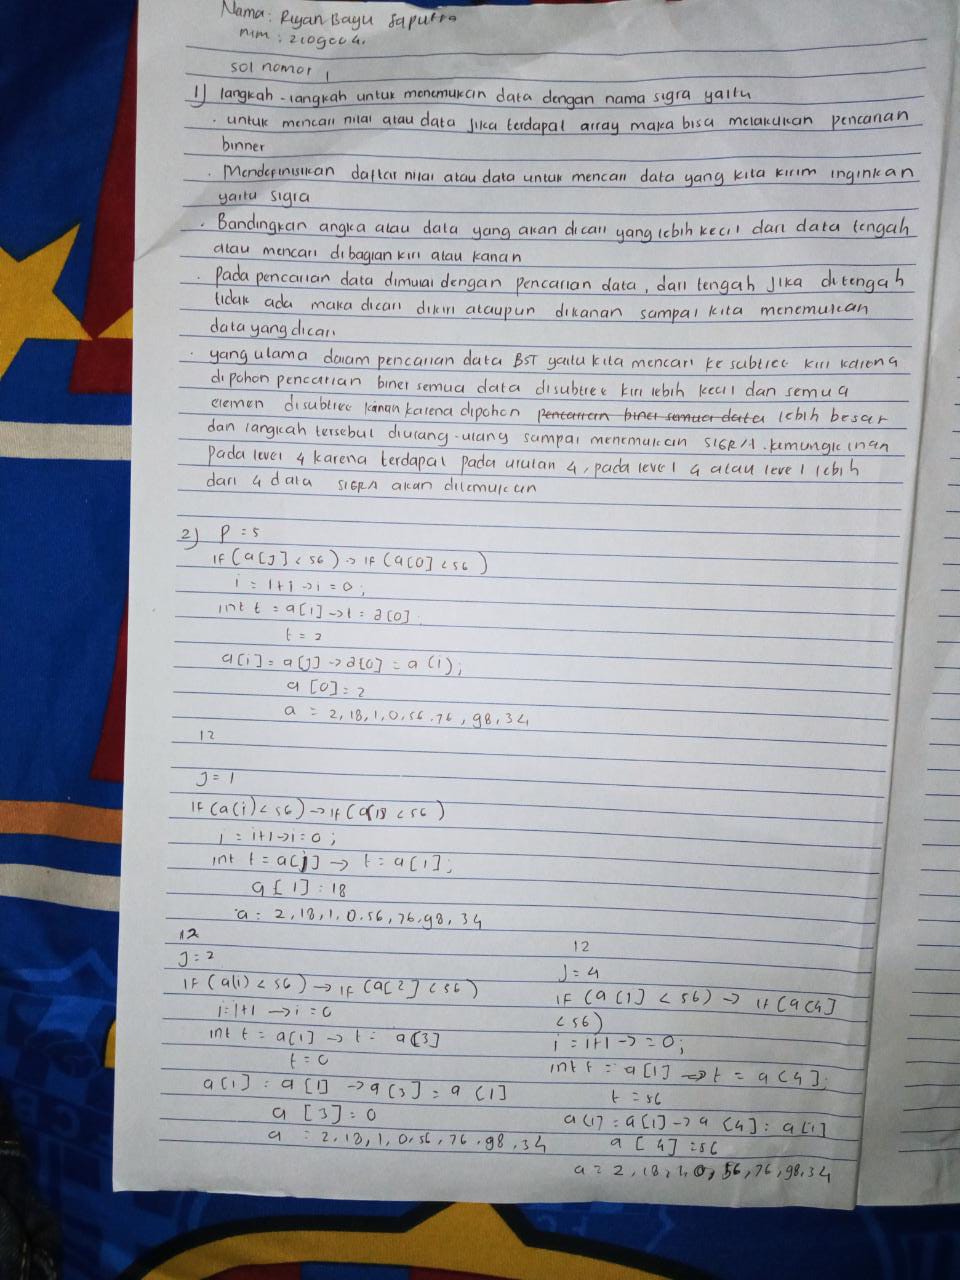 Nama: Riyan Bayu Saputra
nim : 210gc04.
sol nomor 1
1) langkah-langkah untuk menemukan data dengan nama sigra yaitu
. untuk mencari nilai atau data jika terdapat array maka bisa melakukan pencarian
binner
. Mendefinisikan daftar nilai atau data untuk mencari data yang kita kirim inginkan
yaitu sigra
. Bandingkan angka atau data yang akan dicari yang lebih kecil dari data tengah
atau mencari dibagian kiri atau kanan
. pada pencarian data dimulai dengan pencarian data, dari tengah jika ditengah
tidak ada maka dicari dikiri ataupun dikanan sampai kita menemukan
data yang dicari
. yang utama dalam pencarian data BST yaitu kita mencari ke subtree kiri karena
di pohon pencarian biner semua data disubtree kiri lebih kecil dan semua
elemen disubtree kanan karena dipohon pencarian biner semua data lebih besar
dan langkah tersebut diulang-ulang sampai menemukan SIGRA. kemungkinan
pada level 4 karena terdapat pada urutan 4, pada level 4 atau level lebih
dari 4 data SIGRA akan ditemukan
2) P = 5
if (a[j] < 56) -> if (a[0] < 56)
i = i+1 -> i = 0;
int t = a[i] -> t = a[0].
t = 2
a[i] = a[j] -> a[0] = a(i);
a [0] = 2
a = 2, 18, 1, 0, 56, 76, 98, 34
12
J = 1
if (a(i) < 56) -> if (a[18 < 56)
i = i+1 -> i = 0;
int t = a[j] -> t = a[1];
a [1] : 18
a : 2, 18, 1, 0, 56, 76, 98, 34
12
J = 2
if (a(i) < 56) -> if (a[2] < 56)
i=i+1 -> i = 0
int t = a[i] -> t = a[3]
t = 0
a(i) = a[i] -> a[3] = a[i]
a [3] = 0
a = 2, 18, 1, 0, 56, 76, 98, 34
12
J = 4
if (a[i] < 56) -> if (a[4]
< 56)
i = i+1 -> = 0;
int t = a[i] -> t = a[4];
t = 56
a(i) = a[i] -> a [4] = a[i]
a [4] = 56
a = 2, 18, 1, 0, 56, 76, 98, 34